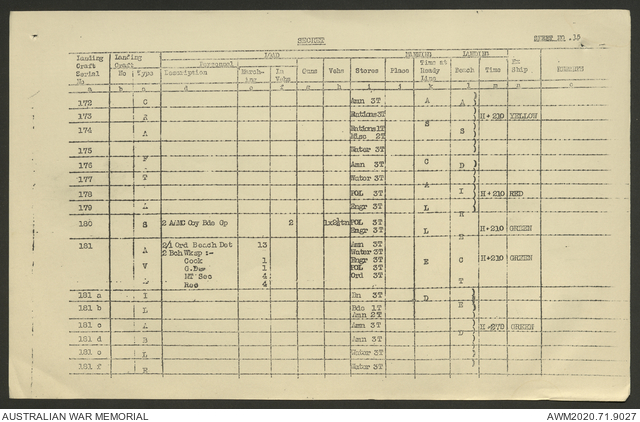 SECRET
SHEET NO .15
Landing Craft Serial No | Landing Craft | LOAD | NUMBER | LANDING | Ex Ship | REMARKS
No | Type | Personnel | Guns | Vehs | Stores | Place | Time at Ready Line | Beach | Time
Description | March-ing | In Vehs
172 C Amn 3T A A
173 Rations 3T H+210 YELLOW
174 A Rations 1T S S
Misc 2T
175 Water 3T
176 F Amn 3T C D
177 T Water 3T
178 POL 3T A I H+210 RED
179 A Engr 3T L R
180 S 2 AAMC Coy Bds Gp 2 1x2½tn POL 3T H+210 GREEN
Engr 3T L E
181 2/1 Ord Beach Det 13 Amn 3T
A 2 Bch Wksp :- Water 3T
Cook 1 Engr 3T E C H+210 GREEN
V G.D 1 POL 3T
MT Sec 4 Ord 3T T
L Rec 4
181 a I 3T D
181 b L Bds 1T H
Amn 2T
181 c A Amn 3T D H+270 GREEN
181 d B Amn 3T
181 e L Water 3T
181 f E Water 3T
AUSTRALIAN WAR MEMORIAL
AWM2020.71.9027